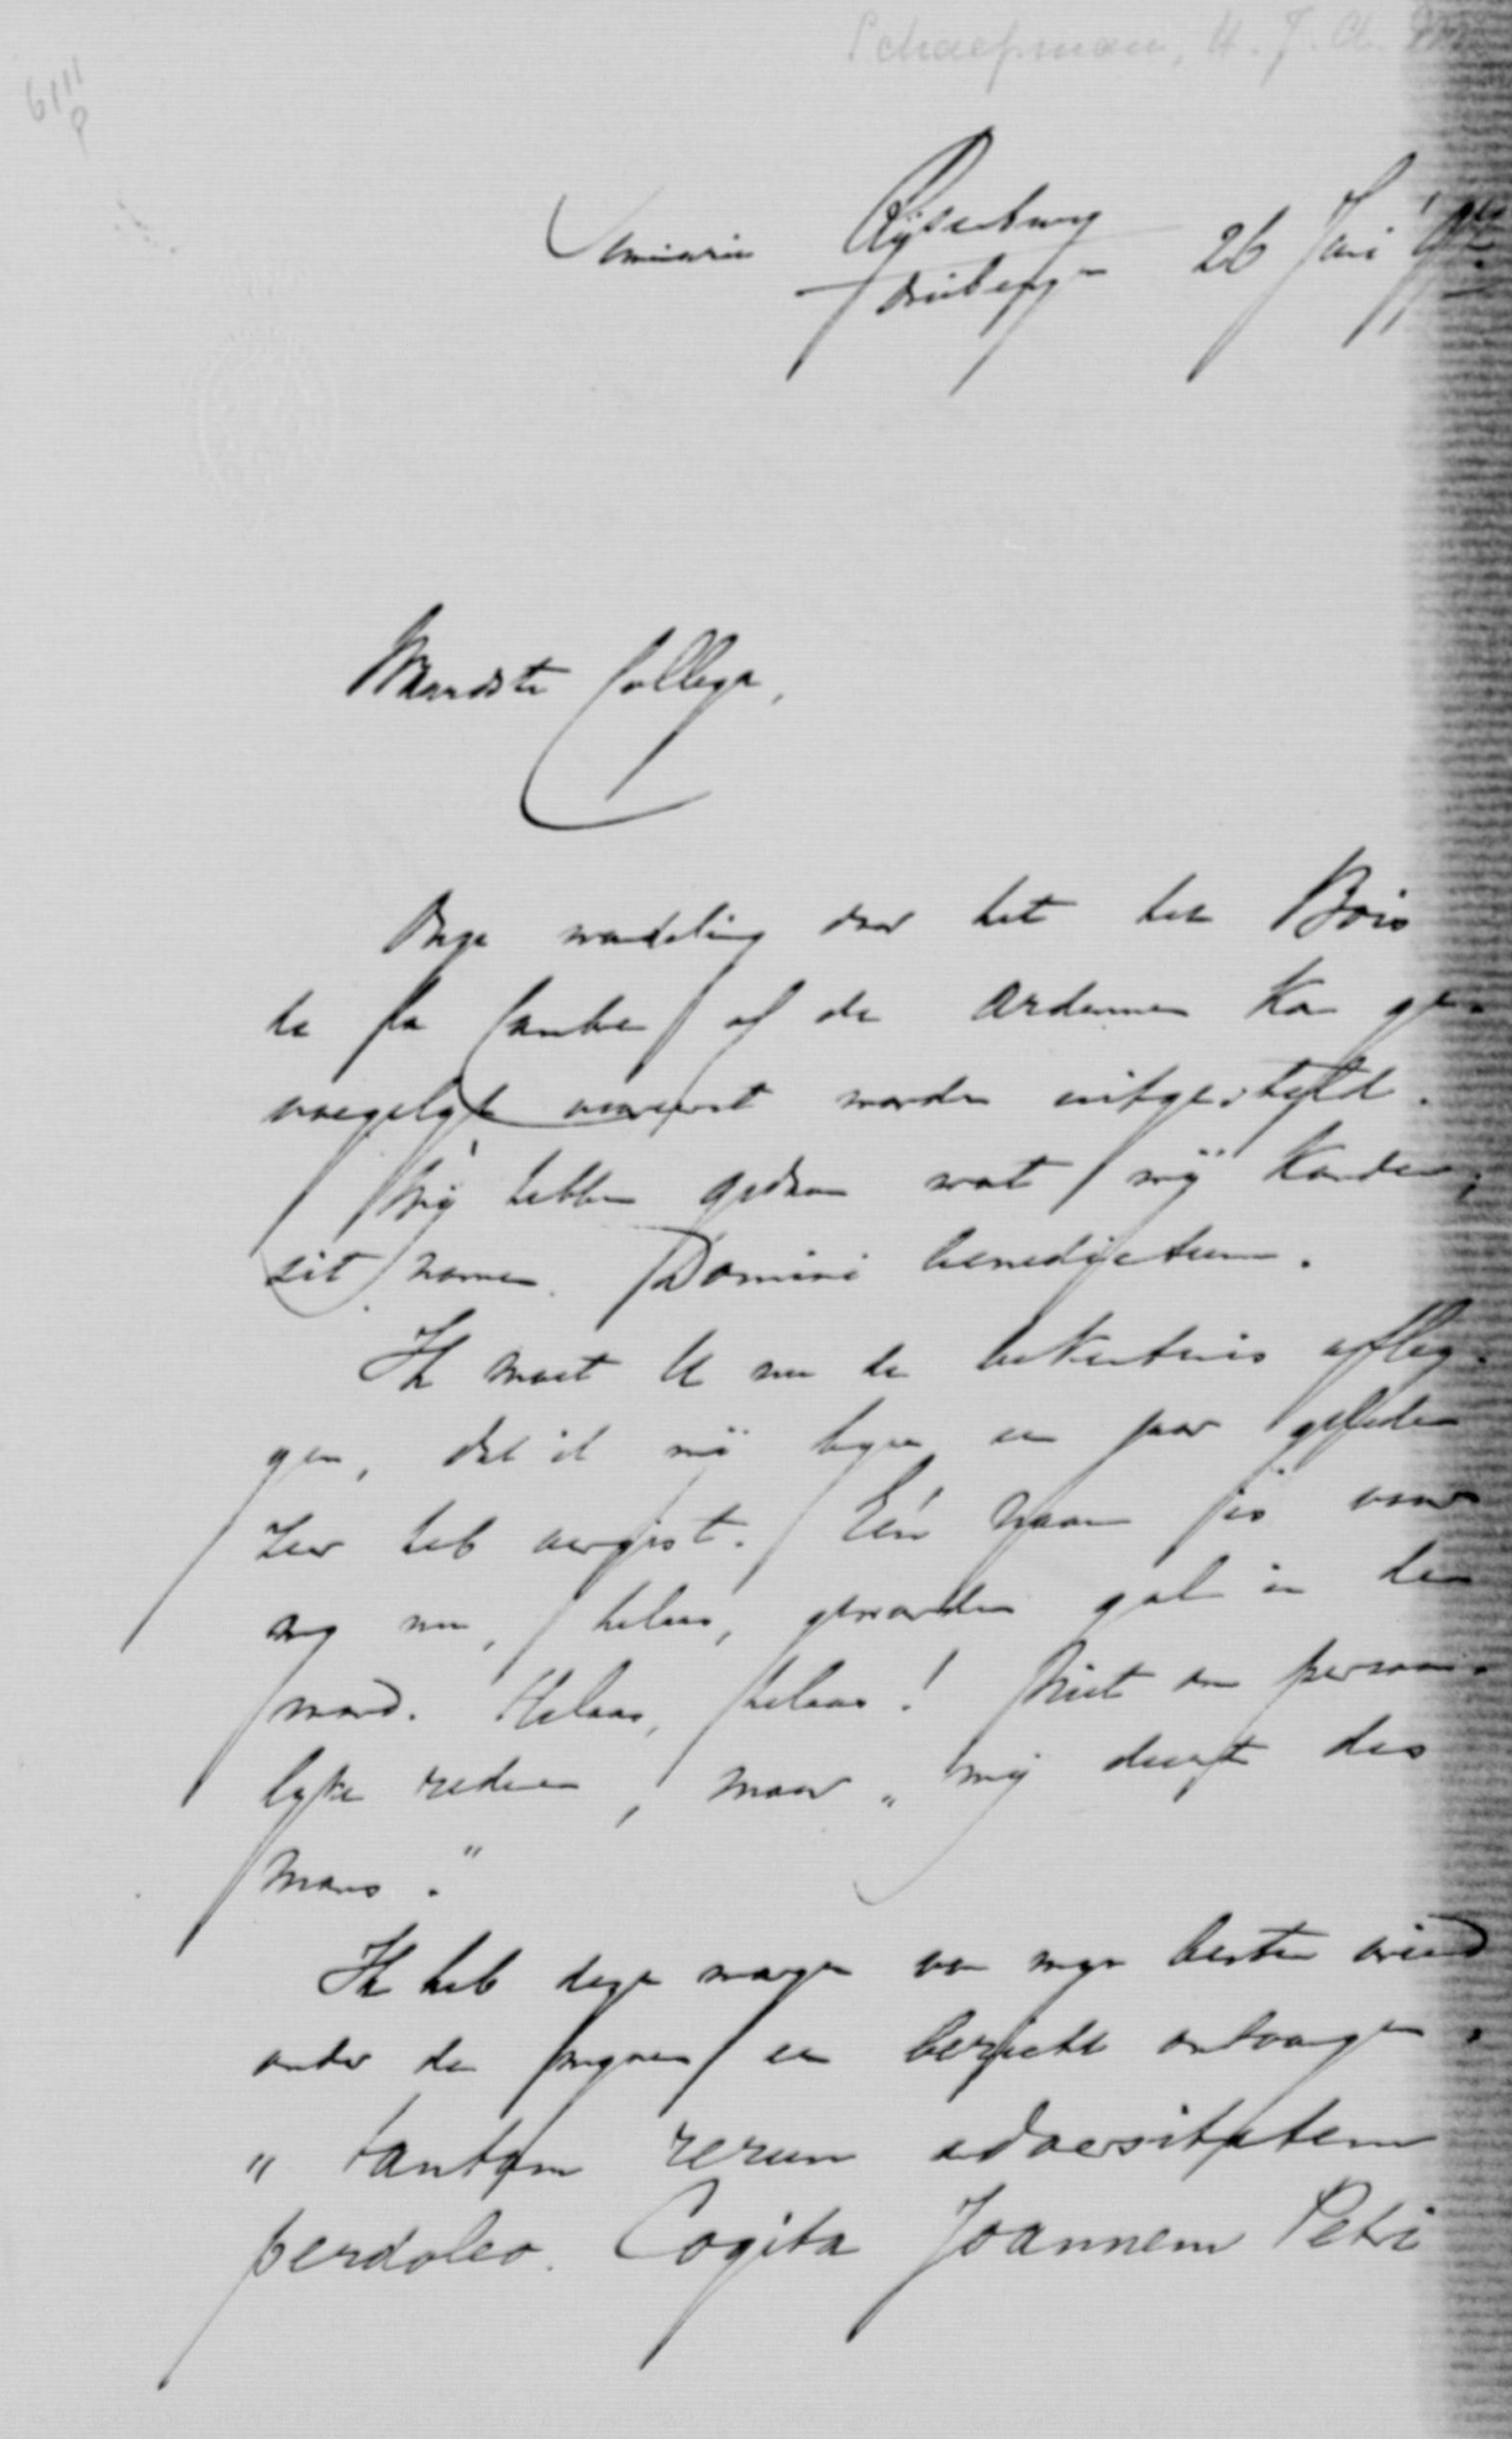 Schaepman, H. J. A. M.
6111
P
Seminarie Rijsenburg 26 Juni
Driebergen
Waardste Collega,
Onze wandeling door het het Bois
de la Cambre of de Ardennen kan ge-
voegelijk vooreerst worden uitgesteld.
Wij hebben gedaan wat wij konden;
sit nomen Domini benedictum.
Ik moet U nu de bekentenis afleg-
gen, dat ik mij tegen een paar geleden
zeer heb vergist. Eén naam is voor
mij nu, helaas, geworden gal in den
mond. Helaas, helaas! Niet om persoon-
lijke redenen, maar „mij deert des
mans."
Ik heb dezen morgen van mijn besten vriend
onder de mijnen een bericht ontvangen.
„tantam rerum adversitatem
perdoleo. Cogita Joannem Petri